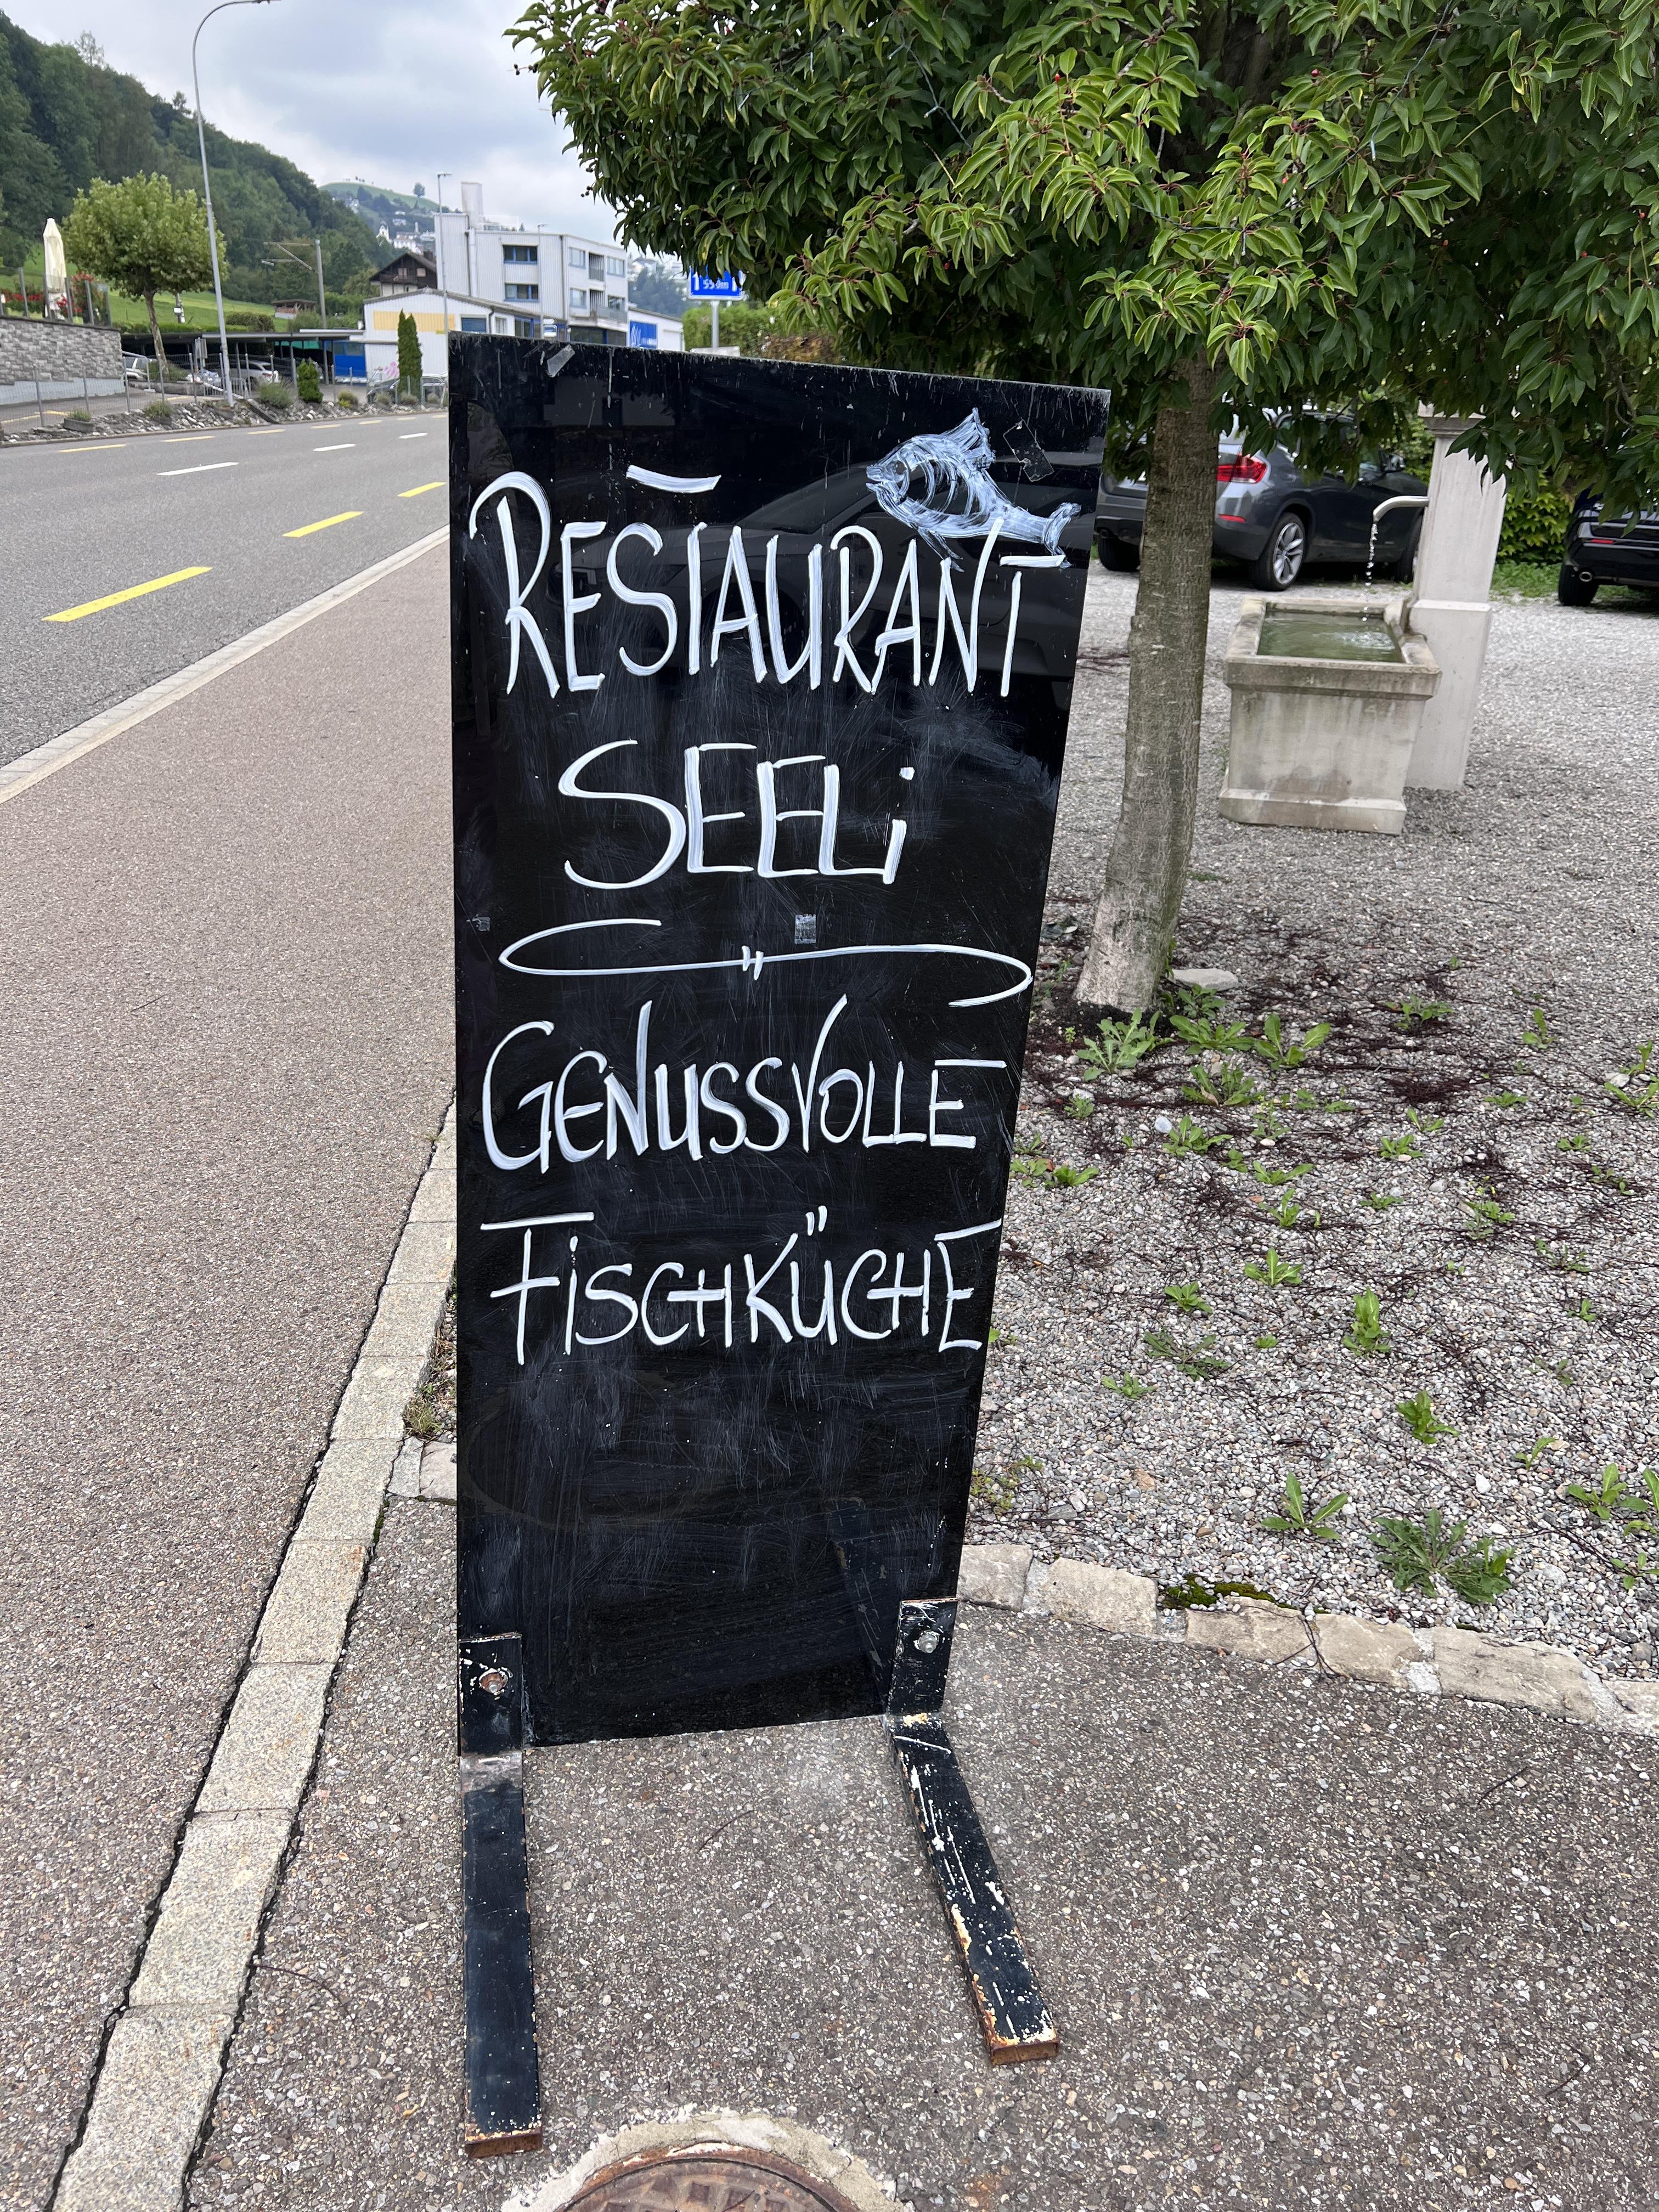 RESTAURANT
SEELi
GENUSSVOLLE
FiSCHKÜCHE